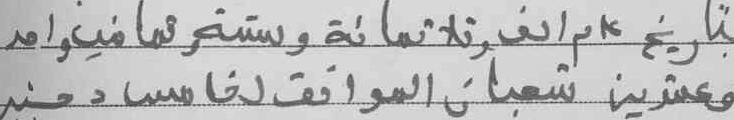 بتاريخ عام الف وثلاثمائة وستة وثمانين واحد
وعشرين شعبان الموافق لخامس دجنبر